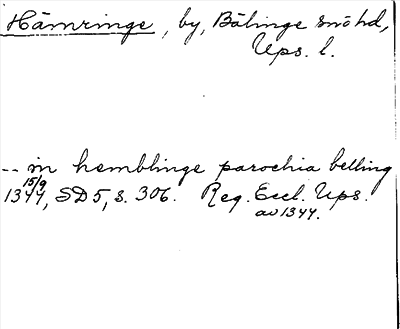 Hämringe, by, Bälinge snöhd,
Ups. l.
-- in hemblinge parochia belling
15/9
1344, SD5, s. 306. Reg. Eccl. Ups.
av 1344.